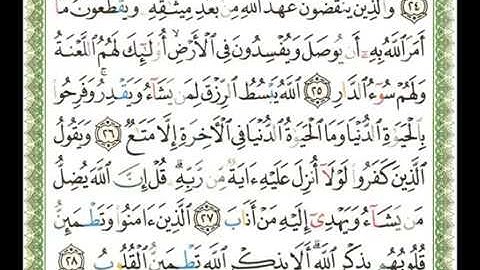 ﴿٢٤﴾ وَالَّذِينَ يَنقُضُونَ عَهْدَ اللَّهِ مِن بَعْدِ مِيثَٰقِهِ وَيَقْطَعُونَ مَا
أَمَرَ اللَّهُ بِهِ أَن يُوصَلَ وَيُفْسِدُونَ فِي الْأَرْضِ أُولَٰئِكَ لَهُمُ اللَّعْنَةُ
وَلَهُمْ سُوءُ الدَّارِ ﴿٢٥﴾ اللَّهُ يَبْسُطُ الرِّزْقَ لِمَن يَشَاءُ وَيَقْدِرُ وَفَرِحُوا
بِالْحَيَوٰةِ الدُّنْيَا وَمَا الْحَيَوٰةُ الدُّنْيَا فِي الْآخِرَةِ إِلَّا مَتَٰعٌ ﴿٢٦﴾ وَيَقُولُ
الَّذِينَ كَفَرُوا لَوْلَا أُنزِلَ عَلَيْهِ ءَايَةٌ مِّن رَّبِّهِ قُلْ إِنَّ اللَّهَ يُضِلُّ
مَن يَشَاءُ وَيَهْدِي إِلَيْهِ مَنْ أَنَابَ ﴿٢٧﴾ الَّذِينَ ءَامَنُوا وَتَطْمَئِنُّ
قُلُوبُهُم بِذِكْرِ اللَّهِ أَلَا بِذِكْرِ اللَّهِ تَطْمَئِنُّ الْقُلُوبُ ﴿٢٨﴾